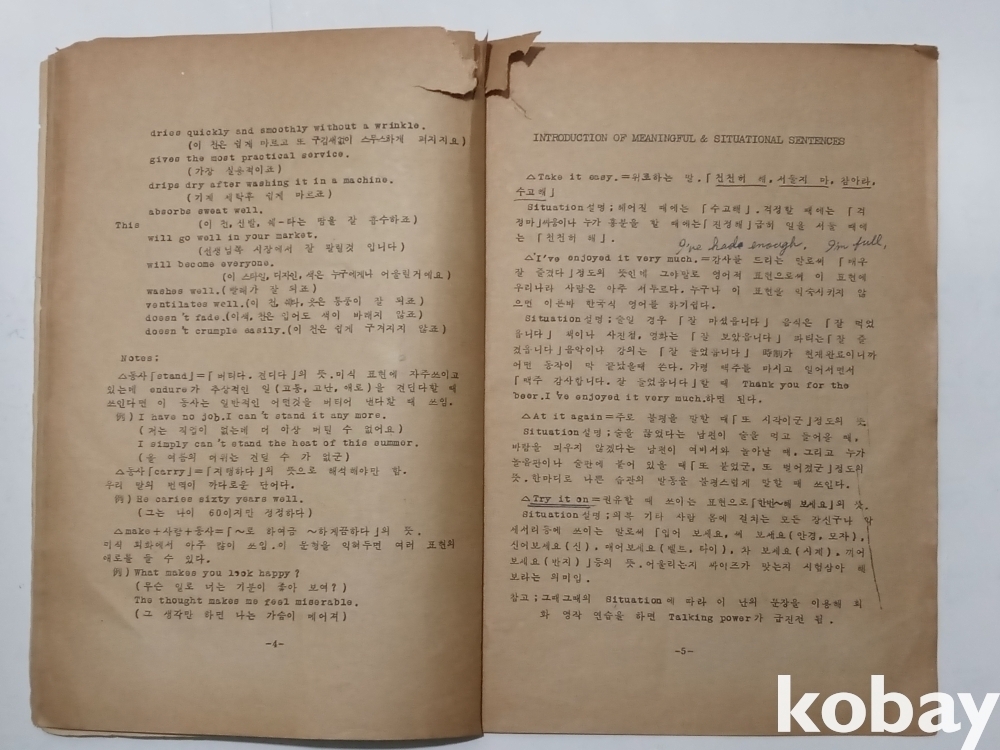 dries quickly and smoothly without a wrinkle.
(이 천은 쉽게 마르고 또 구김새없이 스무스하게 펴지지요)
gives the most practical service.
(가장 실용적이죠)
drips dry after washing it in a machine.
(기계 세탁후 쉽게 마르죠)
absorbs sweat well.
This (이 천, 신발, 쉐-타는 땀을 잘 흡수하죠)
will go well in your market.
(선생님쪽 시장에서 잘 팔릴겁 입니다)
will become everyone.
(이 스타일, 디자인, 색은 누구에게나 어울릴거예요)
washes well.(빨래가 잘 되죠)
ventilates well.(이 천, 옷은 통풍이 잘 되죠)
doesn't fade.(이색, 천은 입어도 색이 바래지 않죠)
doesn't crumple easily.(이 천은 쉽게 구겨지지 않죠)
Notes;
△동사「stand」=「버티다. 견디다」의 뜻.미식 표현에 자주쓰이고
있는데 endure가 추상적인 일(고통,고난,애로)을 견딘다할 때
쓰인다면 이 동사는 일반적인 어떤것을 버티어 낸다할 때 쓰임.
例) I have no job.I can't stand it any more.
(저는 직업이 없는데 더 이상 버틸 수 없어요)
I simply can't stand the heat of this summer.
(올 여름의 더위는 견딜 수 가 없군)
△동사「carry」=「지탱하다」의 뜻으로 해석해야만 함.
우리 말의 번역이 까다로운 단어다.
例) He caries sixty years well.
(그는 나이 60이지만 정정하다)
△make+사람+동사=「～로 하여금 ～하게끔하다」의 뜻.
미식 회화에서 아주 많이 쓰임.이 문형을 익혀두면 여러 표현의
애로를 풀 수 있다.
例) What makes you look happy?
(무슨 일로 너는 기분이 좋아 보여?)
The thought makes me feel miserable.
(그 생각만 하면 나는 가슴이 메어져)
-4-
INTRODUCTION OF MEANINGFUL & SITUATIONAL SENTENCES
△Take it easy.=위로하는 말.「천천히 해,서둘지 마,참아라,
수고해」
Situation설명;헤어질 때에는「수고해」.걱정할 때에는「걱
정마」싸움이나 누가 흥분을 할 때에는「진정해」급히 일을 서둘 때에
는「천천히 해」.
I've had enough. I'm full,
△I've enjoyed it very much.=감사를 드리는 말로써「매우
잘 즐겼다」정도의 뜻인데 그야말로 영어적 표현으로써 이 표현에
우리나라 사람은 아주 서두르다.누구나 이 표현을 익숙시키지 않
으면 이른바 한국식 영어를 하기쉽다.
Situation설명;술일 경우「잘 마셨읍니다」음식은「잘 먹었
읍니다」책이나 사진첩,영화는「잘 보았읍니다」파티는「잘 즐
겼읍니다」음악이나 강의는「잘 들었읍니다」時制가 현재완료이니까
어떤 동작이 막 끝났을때 쓴다.가령 맥주를 마시고 일어서면서
「맥주 감사합니다.잘 들었읍니다」할 때 Thank you for the
beer.I've enjoyed it very much.하면 된다.
△At it again=주로 불평을 말할 때「또 시작이군」정도의 뜻
Situation설명;술을 끊었다는 남편이 술을 먹고 들어올 때,
바람을 피우지 않겠다는 남편이 여비서와 놀아날 때.그리고 누가
노름판이나 술판에 붙어 있을 때「또 붙었군,또 벌어졌군」정도의
뜻.한마디로 나쁜 습관의 발동을 불평스럽게 말할 때 쓰인다.
△Try it on=권유할 때 쓰이는 표현으로「한번～해 보세요」의 뜻.
Situation설명;의복 기타 사람 몸에 걸치는 모든 장신구나 악
세서리등에 쓰이는 말로써「입어 보세요,써 보세요(안경,모자),
신어보세요(신),매어보세요(벨트,타이),차 보세요(시계),끼어
보세요(반지)」등의 뜻.어울리는지 싸이즈가 맞는지 시험삼아 해
보라는 의미임.
참고;그때그때의 Situation에 따라 이 난의 문장을 이용해 회
화 영작 연습을 하면 Talking power가 급진전 됨.
-5-
kobay